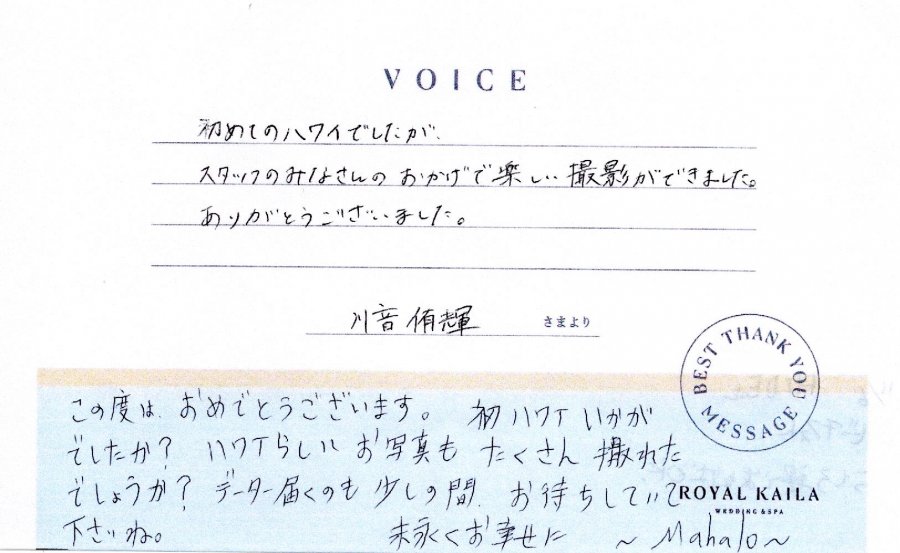 VOICE
初めてのハワイでしたが、
スタッフのみなさんのおかげで楽しい撮影ができました。
ありがとうございました。
川音 侑輝 さまより
BEST THANK YOU MESSAGE
この度は、おめでとうございます。 初ハワイいかが
でしたか? ハワイらしいお写真も たくさん 撮れた
でしょうか? データー届くのも 少しの間、お待ちしていて
下さいね。 末永くお幸せに ~Mahalo~
ROYAL KAILA
WEDDING & SPA